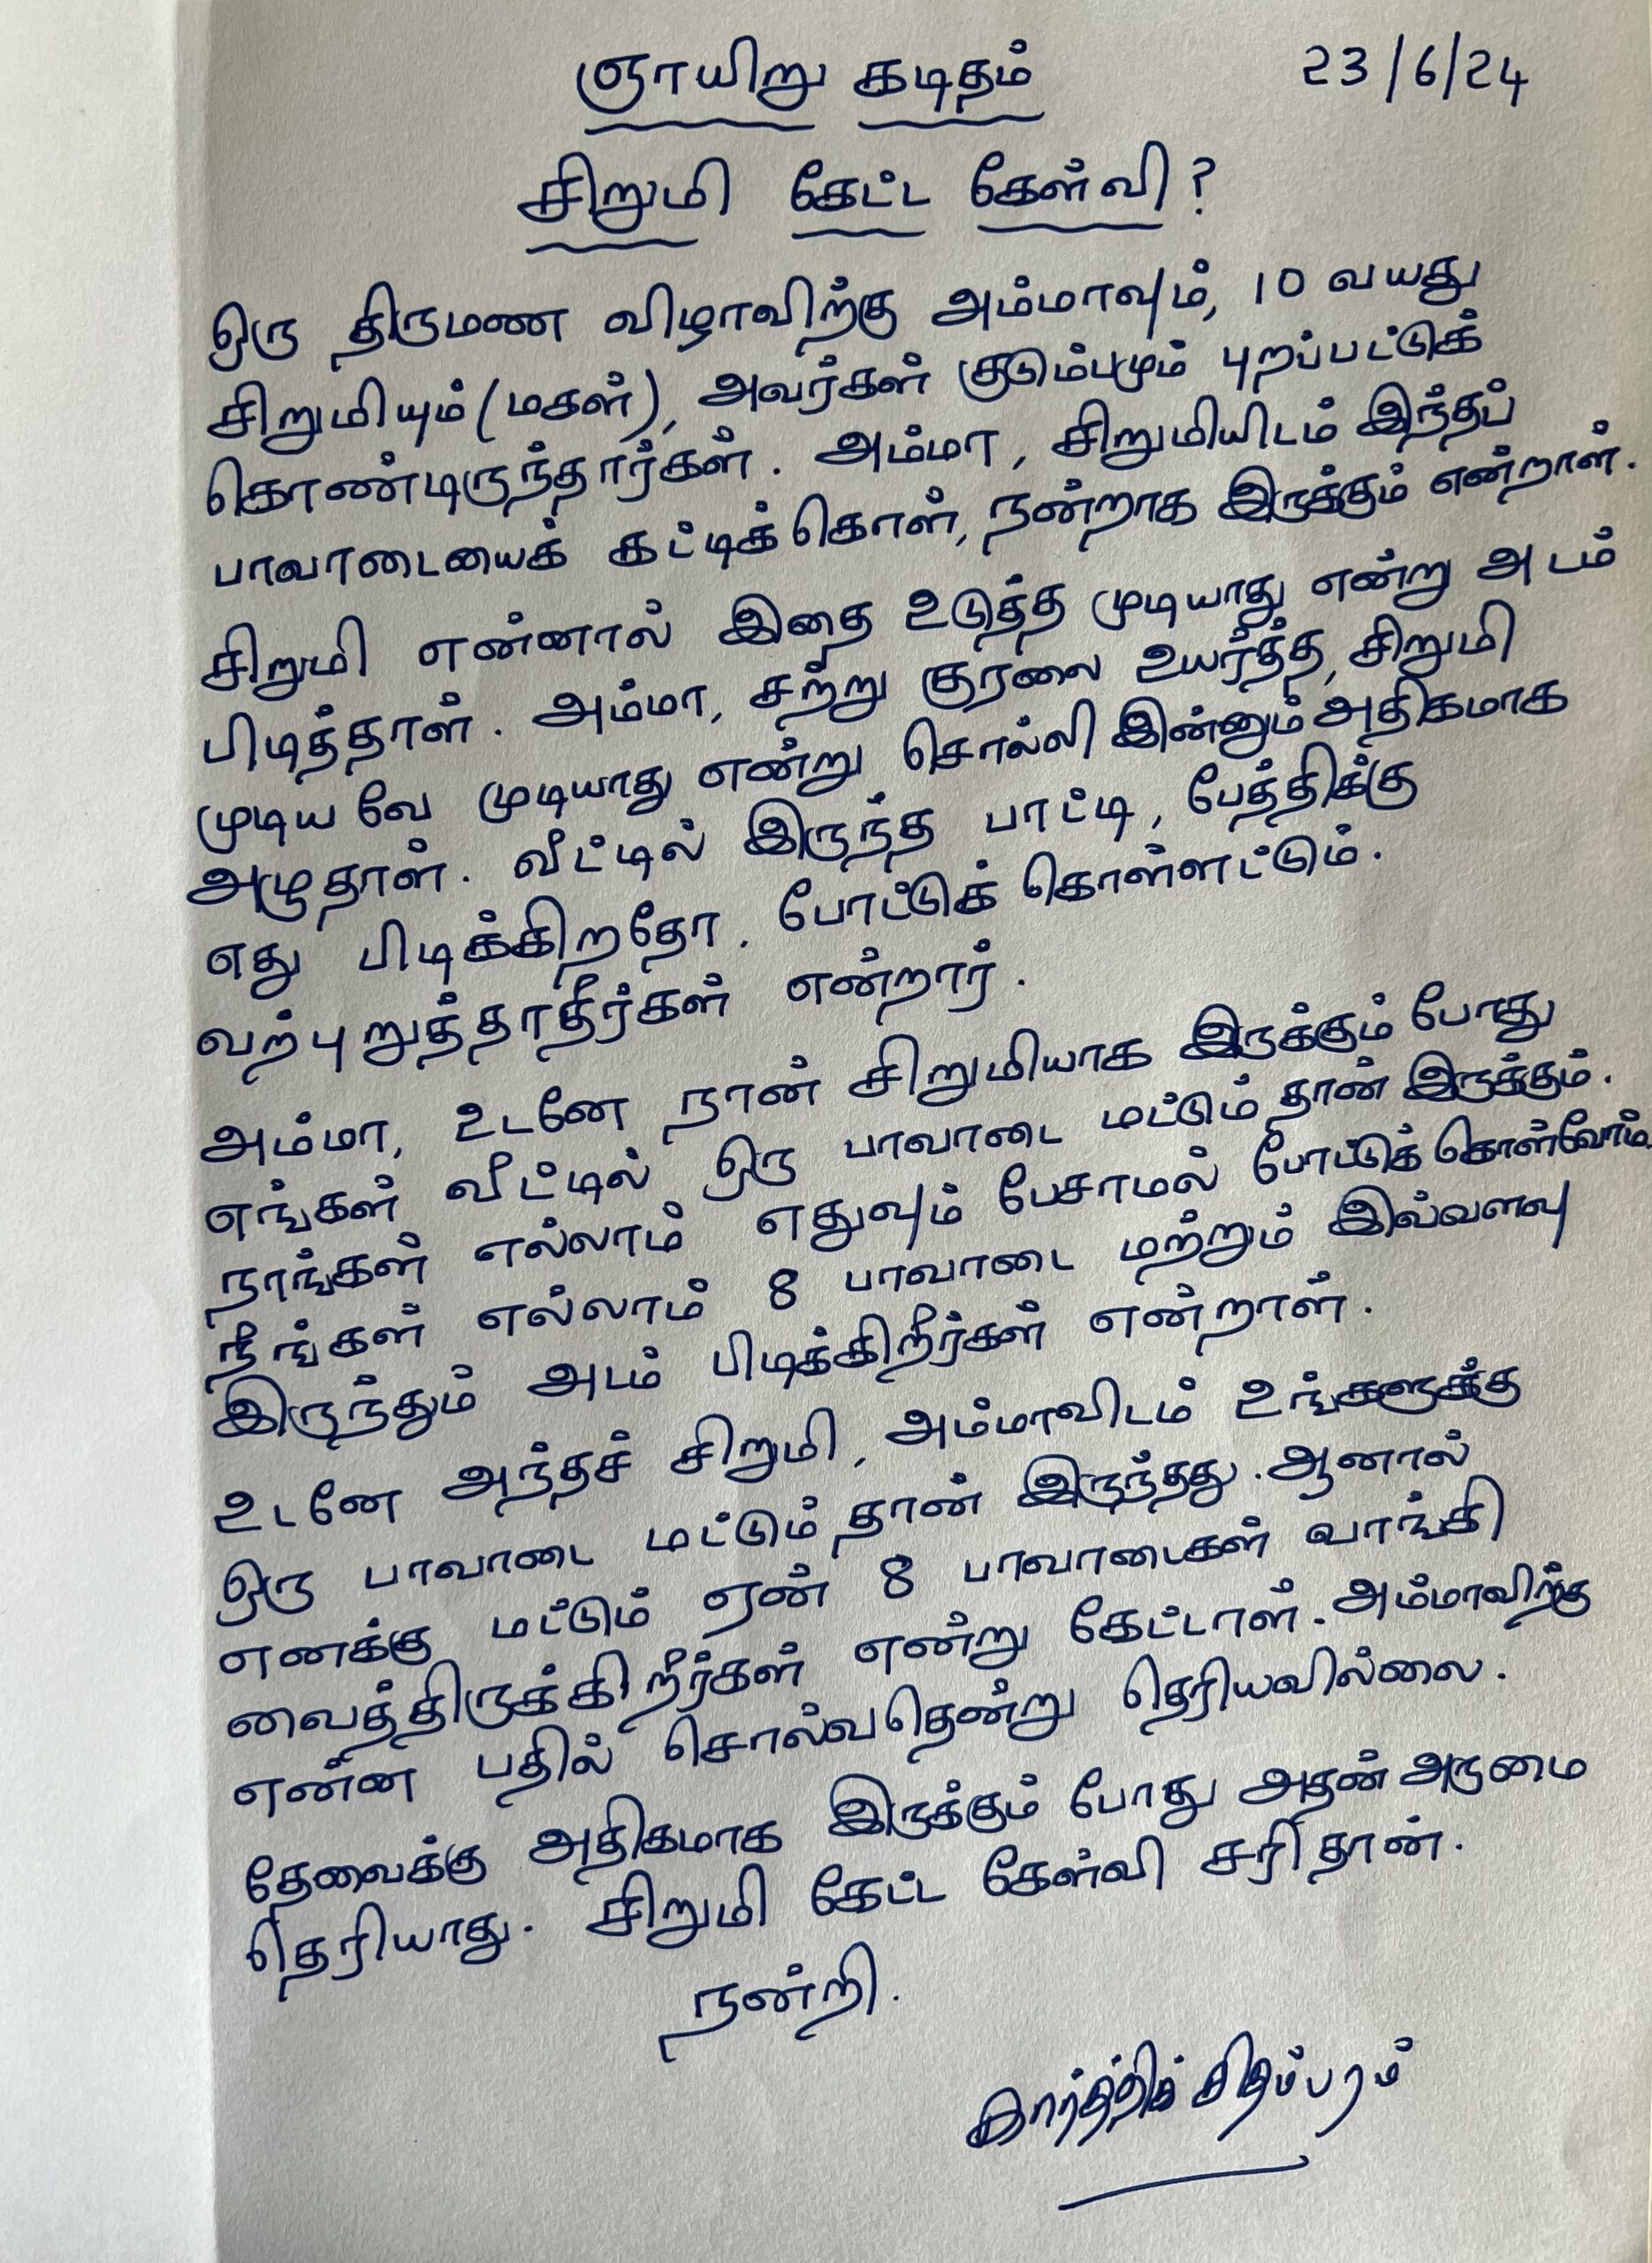 ஞாயிறு கடிதம் 23/6/24
சிறுமி கேட்ட கேள்வி?
ஒரு திருமண விழாவிற்கு அம்மாவும், 10 வயது
சிறுமியும் (மகள்), அவர்கள் குடும்பமும் புறப்பட்டுக்
கொண்டிருந்தார்கள். அம்மா, சிறுமியிடம் இந்தப்
பாவாடையைக் கட்டிக்கொள், நன்றாக இருக்கும் என்றாள்.
சிறுமி என்னால் இதை உடுத்த முடியாது என்று அடம்
பிடித்தாள். அம்மா, சற்று குரலை உயர்த்த, சிறுமி
முடியவே முடியாது என்று சொல்லி இன்னும் அதிகமாக
அழுதாள். வீட்டில் இருந்த பாட்டி, பேத்திக்கு
எது பிடிக்கிறதோ. போட்டுக் கொள்ளட்டும்.
வற்புறுத்தாதீர்கள் என்றார்.
அம்மா, உடனே நான் சிறுமியாக இருக்கும் போது
எங்கள் வீட்டில் ஒரு பாவாடை மட்டும் தான் இருக்கும்.
நாங்கள் எல்லாம் எதுவும் பேசாமல் போட்டுக் கொள்வோம்.
நீங்கள் எல்லாம் 8 பாவாடை மற்றும் இவ்வளவு
இருந்தும் அடம் பிடிக்கிறீர்கள் என்றாள்.
உடனே அந்தச் சிறுமி, அம்மாவிடம் உங்களுக்கு
ஒரு பாவாடை மட்டும் தான் இருந்தது. ஆனால்
எனக்கு மட்டும் ஏன் 8 பாவாடைகள் வாங்கி
வைத்திருக்கிறீர்கள் என்று கேட்டாள். அம்மாவிற்கு
என்ன பதில் சொல்வதென்று தெரியவில்லை.
தேவைக்கு அதிகமாக இருக்கும் போது அதன் அருமை
தெரியாது. சிறுமி கேட்ட கேள்வி சரி தான்.
நன்றி.
கார்த்திக் சிதம்பரம்